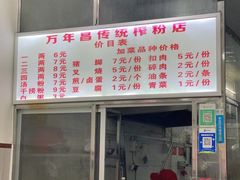 万年昌传统榨粉店
价目表
加菜品种价格
一两6元
二两7元 猪脚7元/份 扣肉5元/份
三两8元 叉烧5元/份 碎肉2元/份
四两9元 煎/卤蛋2元/个 油条2元/条
汤粉7元 豆腐1元/份 青菜1元/份
干捞粉9元